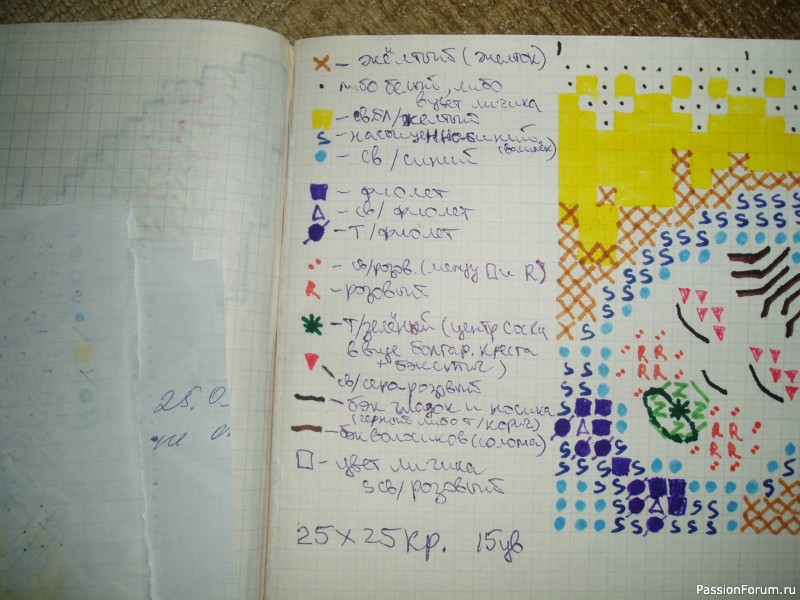 25.0
не
- жёлтый (желток)
либо белый, либо
в цвет личика
- св.бл/желтый
S - насыщенно-синий
(василёк)
- св/синий
- фиолет
- св/фиолет
- т/фиолет
- св/розов. (между □ и R)
R - розовый
- т/зелёный (центр соски
в виде болгар. креста
+ бэкстич)
св/серо-розовый
- бэк глазок и носика
(черный либо т/корич)
- бэк волосиков (солома)
□ - цвет личика
св/розовый
25 х 25 кр. 15 цв
PassionForum.ru